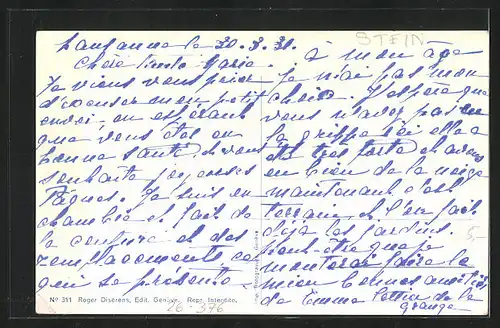 STEIN
Lausanne le 30.3.31.
Chère Tante Marie.
Je viens vous prier
d'excuser mon petit
envoi, en espérant
que vous êtes en
bonne santé, je vous
souhaite joyeuses
Pâques. Je suis en
chambre et fait de
la couture et des
remplacements, ce
qui se présente
à mon âge
je n'ai pas mon
choix. J'espère que
vous n'avez pas eu
la grippe ici elle a
été très forte et avons
eu bien de la neige
maintenant c'est
terrain et l'on fait
déjà les jardins.
peut-être que je
monterai faire la
mon bonnes amitiés
de Emma
de la
grange
Nº 311 Roger Disérens, Edit. Genève. Repr. Interdite.
26-376
5,-